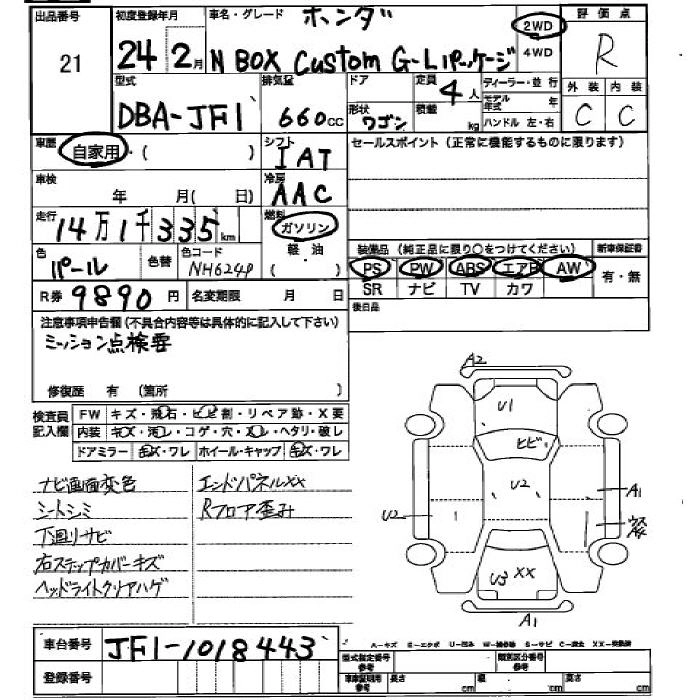 出品番号 初度登録年月 車名・グレード ホンダ 2WD 4WD 評価点
21 24年2月 N BOX Custom G-Lパッケージ R
型式 排気量 ドア 定員 ディーラー・並行 外装 内装
DBA-JF1 660cc 形状 ワゴン 4人 積載 kg モデル年式 年 ハンドル 左・右 C C
車歴 自家用・( ) シフト IAT セールスポイント(正常に機能するものに限ります)
車検 年 月( 日) 冷房 AAC
走行 14万1千335km 燃料 ガソリン 軽・油 ( )
色 パール 色替 色コード NH624P 装備品(純正品に限り○をつけてください) 新車保証書
PS PW ABS エアB AW 有・無
R券 9890円 名変期限 月 日 SR ナビ TV カワ
注意事項申告欄(不具合内容等は具体的に記入して下さい) 後日品
ミッション点検要
修復歴 有 (箇所 )
検査員記入欄 FW キズ・飛石・ヒビ割・リペア跡・X要
内装 キズ・汚レ・コゲ・穴・スレ・ヘタリ・破レ
ドアミラー キズ・ワレ ホイール・キャップ キズ・ワレ
ナビ画面変色 エンドパネルXX
シートシミ Rフロア歪み
下廻リサビ
右ステップカバーキズ
ヘッドライトクリアハゲ
A2
U1
ヒビ
U2
A1
U2
U3 XX
A1
車台番号 JF1-1018443
登録番号
A-キズ E-エクボ U-凹み W-補修跡 S-サビ C-腐食 XX-交換済
型式指定番号 参考 類別区分番号 参考
車庫証明用 参考 長さ cm 幅 cm 高さ cm